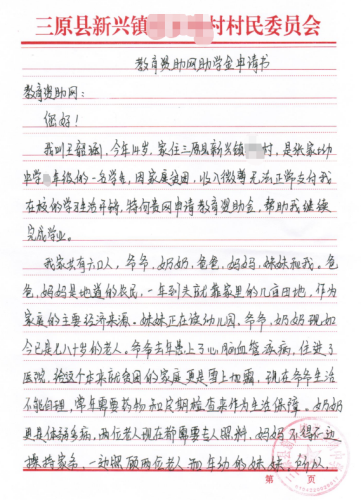 三原县新兴镇 村村民委员会
教育资助网助学金申请书
教育资助网：
您好！
我叫王韶涵，今年14岁，家住三原县新兴镇 村，是张家坳
中学 年级的一名学生，因家庭贫困，收入微薄无法正常支付我
在校的学习生活开销，特向贵网申请教育资助金，帮助我继续
完成学业。
我家共有六口人，爷爷，奶奶，爸爸，妈妈，妹妹和我。爸
爸、妈妈是地道的农民，一年到头就靠家里的几亩田地，作为
家庭的主要经济来源。妹妹正在读幼儿园，爷爷，奶奶现如
今已是七八十岁的老人。爷爷去年患上了心脑血管疾病，住进了
医院，给这个本来就贫困的家庭更是雪上加霜，现在爷爷生活
不能自理，常年需要药物和定期检查来作为生活保障。奶奶
患多病，两位老人现在都需要专人照料，妈妈不得不一边
操持家务，一边照顾两位老人和年幼的妹妹，所以
第 页